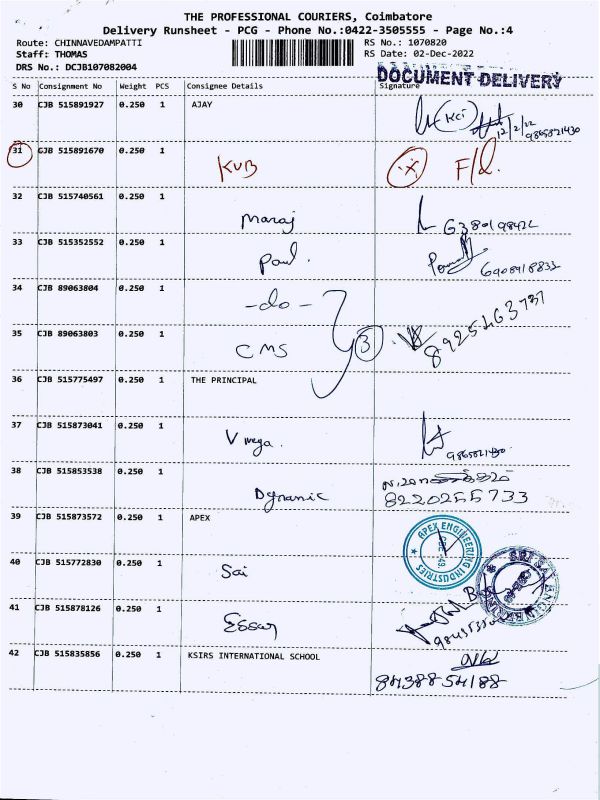 THE PROFESSIONAL COURIERS, Coimbatore
Delivery Runsheet - PCG - Phone No.:0422-3505555 - Page No.:4
Route: CHINNAVEDAMPATTI RS No.: 1070820
Staff: THOMAS RS Date: 02-Dec-2022
DRS No.: DCJB107082004
DOCUMENT DELIVERY
S No Consignment No Weight PCS Consignee Details Signature
30 CJB 515891927 0.250 1 AJAY KCI
12/2/22
9865821430
31 CJB 515891670 0.250 1 KVB X F/d.
32 CJB 515740561 0.250 1 Maraj
33 CJB 515352552 0.250 1 Paul.
34 CJB 89063804 0.250 1 -do-
35 CJB 89063803 0.250 1 CMS 3 8925463737
36 CJB 515775497 0.250 1 THE PRINCIPAL
37 CJB 515873041 0.250 1 V mega.
38 CJB 515853538 0.250 1 Dynamic
8220255733
39 CJB 515873572 0.250 1 APEX
APEX ENGINEERING INDUSTRIES
40 CJB 515772830 0.250 1 Sai
SRI SAI ENGINEERING
41 CJB 515878126 0.250 1 Essar
42 CJB 515835856 0.250 1 KSIRS INTERNATIONAL SCHOOL
8438854188